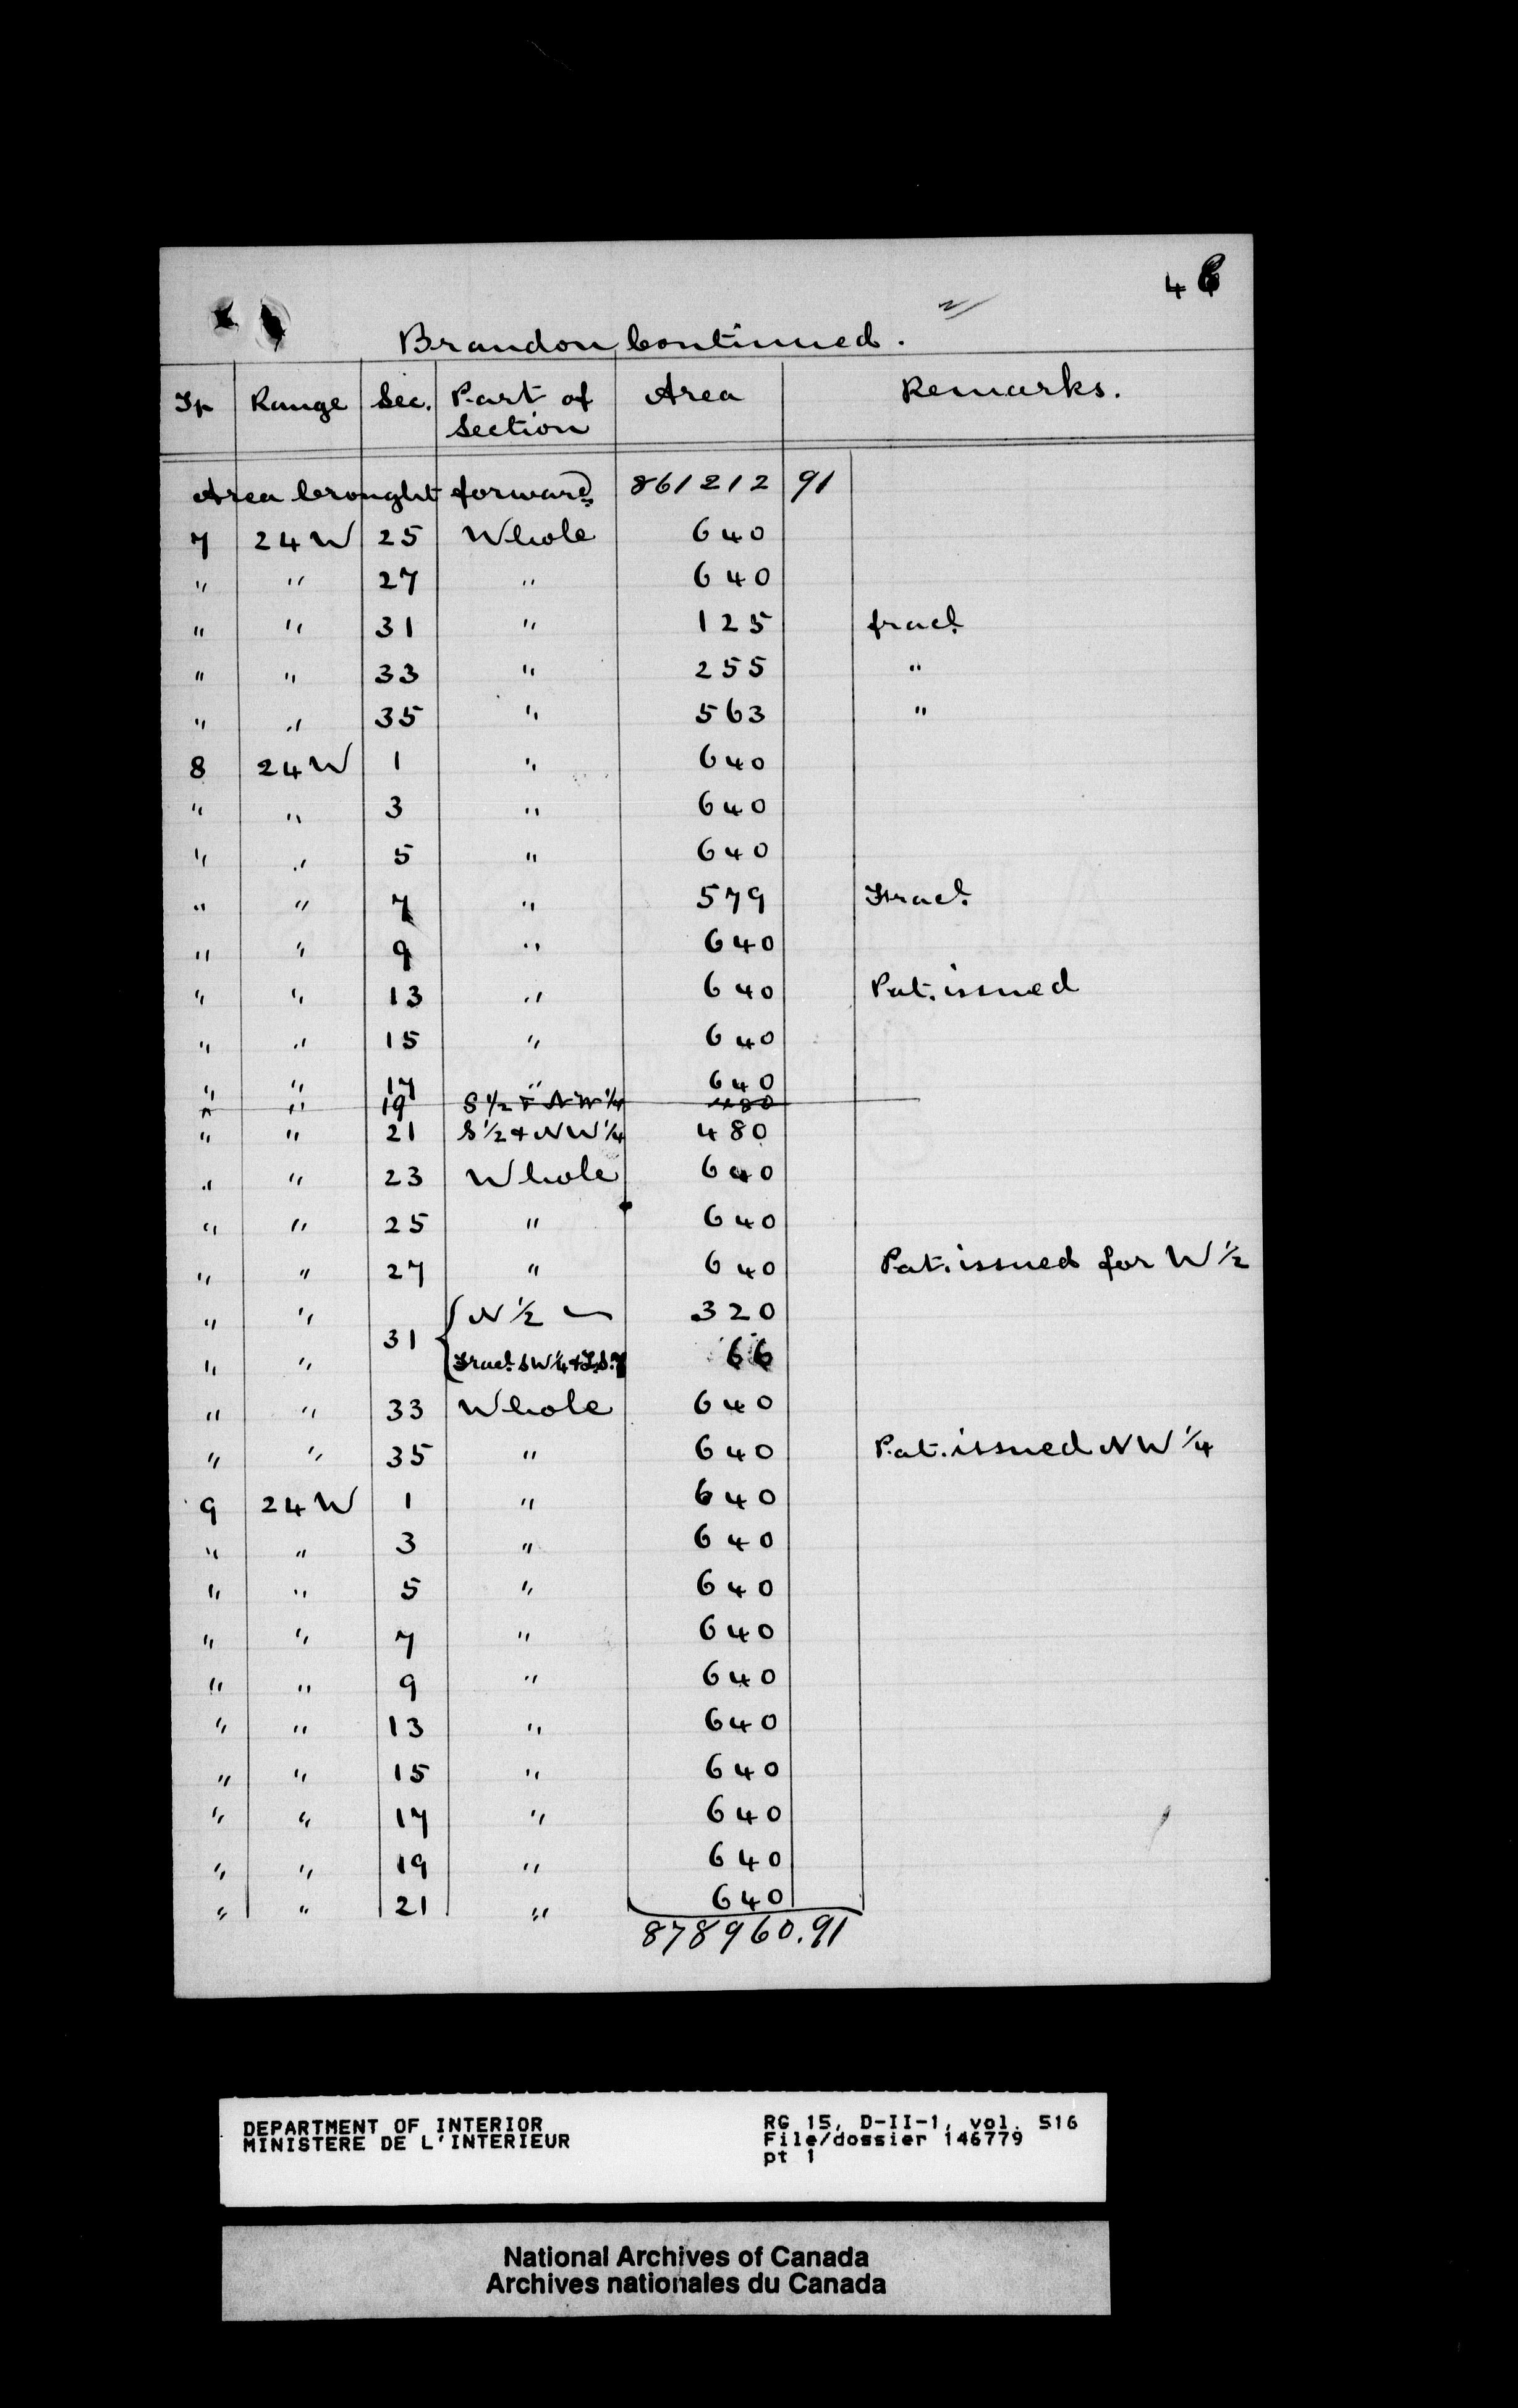 46
Brandon Continued.
Tp Range Sec. Part of Section Area Remarks.
Area brought forward 861212 91
7 24 W 25 Whole 640
" " 27 " 640
" " 31 " 125 fract.
" " 33 " 255 "
" " 35 " 563 "
8 24 W 1 " 640
" " 3 " 640
" " 5 " 640
" " 7 " 579 Fract.
" " 9 " 640
" " 13 " 640 Pat. issued
" " 15 " 640
" " 17 " 640
" " 19 S 1/2 & NW 1/4 480
" " 21 S 1/2 & NW 1/4 480
" " 23 Whole 640
" " 25 " 640
" " 27 " 640 Pat. issued for W 1/2
" " 31 { N 1/2 320
" " Fract. SW 1/4 & L.S. 7 66
" " 33 Whole 640
" " 35 " 640 Pat. issued NW 1/4
9 24 W 1 " 640
" " 3 " 640
" " 5 " 640
" " 7 " 640
" " 9 " 640
" " 13 " 640
" " 15 " 640
" " 17 " 640
" " 19 " 640
" " 21 " 640
878960.91
DEPARTMENT OF INTERIOR
MINISTERE DE L'INTERIEUR
RG 15, D-II-1, vol. 516
File/dossier 146779
pt 1
National Archives of Canada
Archives nationales du Canada